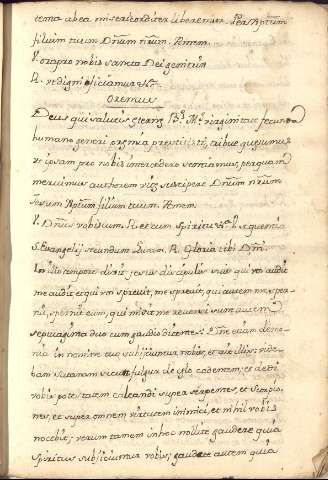 terna abea misericorditer liberemur. Per Xptum
filium tuum Dnūm nrūm. Amen.
V. ora pro nobis sancta Dei genitrix
R. ut digni efficiamur &c.
Oremus
Deus qui salutis eterne B. M. virginitate fecunda
humano generi premia prestitisti, tribue quesumus
ut ipsam pro nobis intercedere sentiamus, per quam
meruimus authorem vite suscipere Dnūm nrūm
Jesum Xptum filium tuum. Amen.
V. Dnūs vobiscum. R. et cum Spiritu tuo. V. sequentia
S. Evangelij secundum Lucam. R. Gloria tibi Dne.
In illo tempore dixit Jesus discipulis suis qui vos audit
me audit et qui vos spreuit, me spreuit, qui autem me sper-
nit, spernit eum, qui misit me reversi sunt autem
septuaginta duo cum gaudio dicentes: Dne etiam demo-
nia in nomine tuo subijciuntur nobis, et ait illis: vide-
bam Satanam sicut fulgur de celo cadentem; ecce dedi
vobis potestatem calcandi supra serpentes, et scorpio-
nes, et super omnem virtutem inimici, et nihil vobis
nocebit; verum tamen in hoc nolite gaudere quia
Spiritus subijciuntur vobis; gaudete autem quia